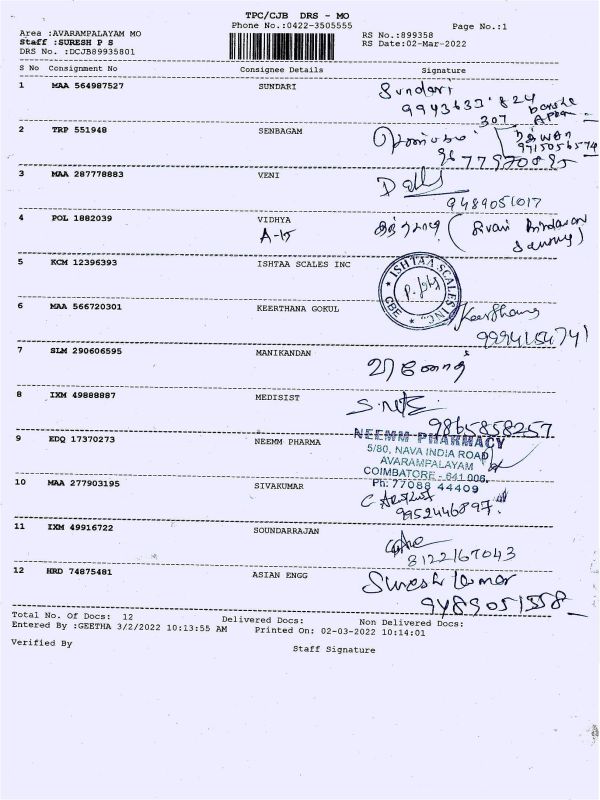 TPC/CJB DRS - MO
Phone No.:0422-3505555
Page No.:1
Area :AVARAMPALAYAM MO
Staff :SURESH P S
DRS No. :DCJB89935801
RS No.:899358
RS Date:02-Mar-2022
S No Consignment No Consignee Details Signature
1 MAA 564987527 SUNDARI Sundari
307
2 TRP 551948 SENBAGAM
9715056574
9677970895
3 MAA 287778883 VENI
9489051017
4 POL 1882039 VIDHYA
5 KCM 12396393 ISHTAA SCALES INC
ISHTAA SCALES INC. CBE
6 MAA 566720301 KEERTHANA GOKUL Keerthana
9994154741
7 SLM 290606595 MANIKANDAN
8 IXM 49888887 MEDISIST
9865858257
9 EDQ 17370273 NEEMM PHARMA
NEEMM PHARMACY
5/80, NAVA INDIA ROAD
AVARAMPALAYAM
COIMBATORE - 641 006.
Ph: 77088 44409
10 MAA 277903195 SIVAKUMAR
9952446897
11 IXM 49916722 SOUNDARRAJAN
8122167043
12 HRD 74875481 ASIAN ENGG Suresh kumar
9489051558
Total No. Of Docs: 12 Delivered Docs: Non Delivered Docs:
Entered By :GEETHA 3/2/2022 10:13:55 AM Printed On: 02-03-2022 10:14:01
Verified By Staff Signature